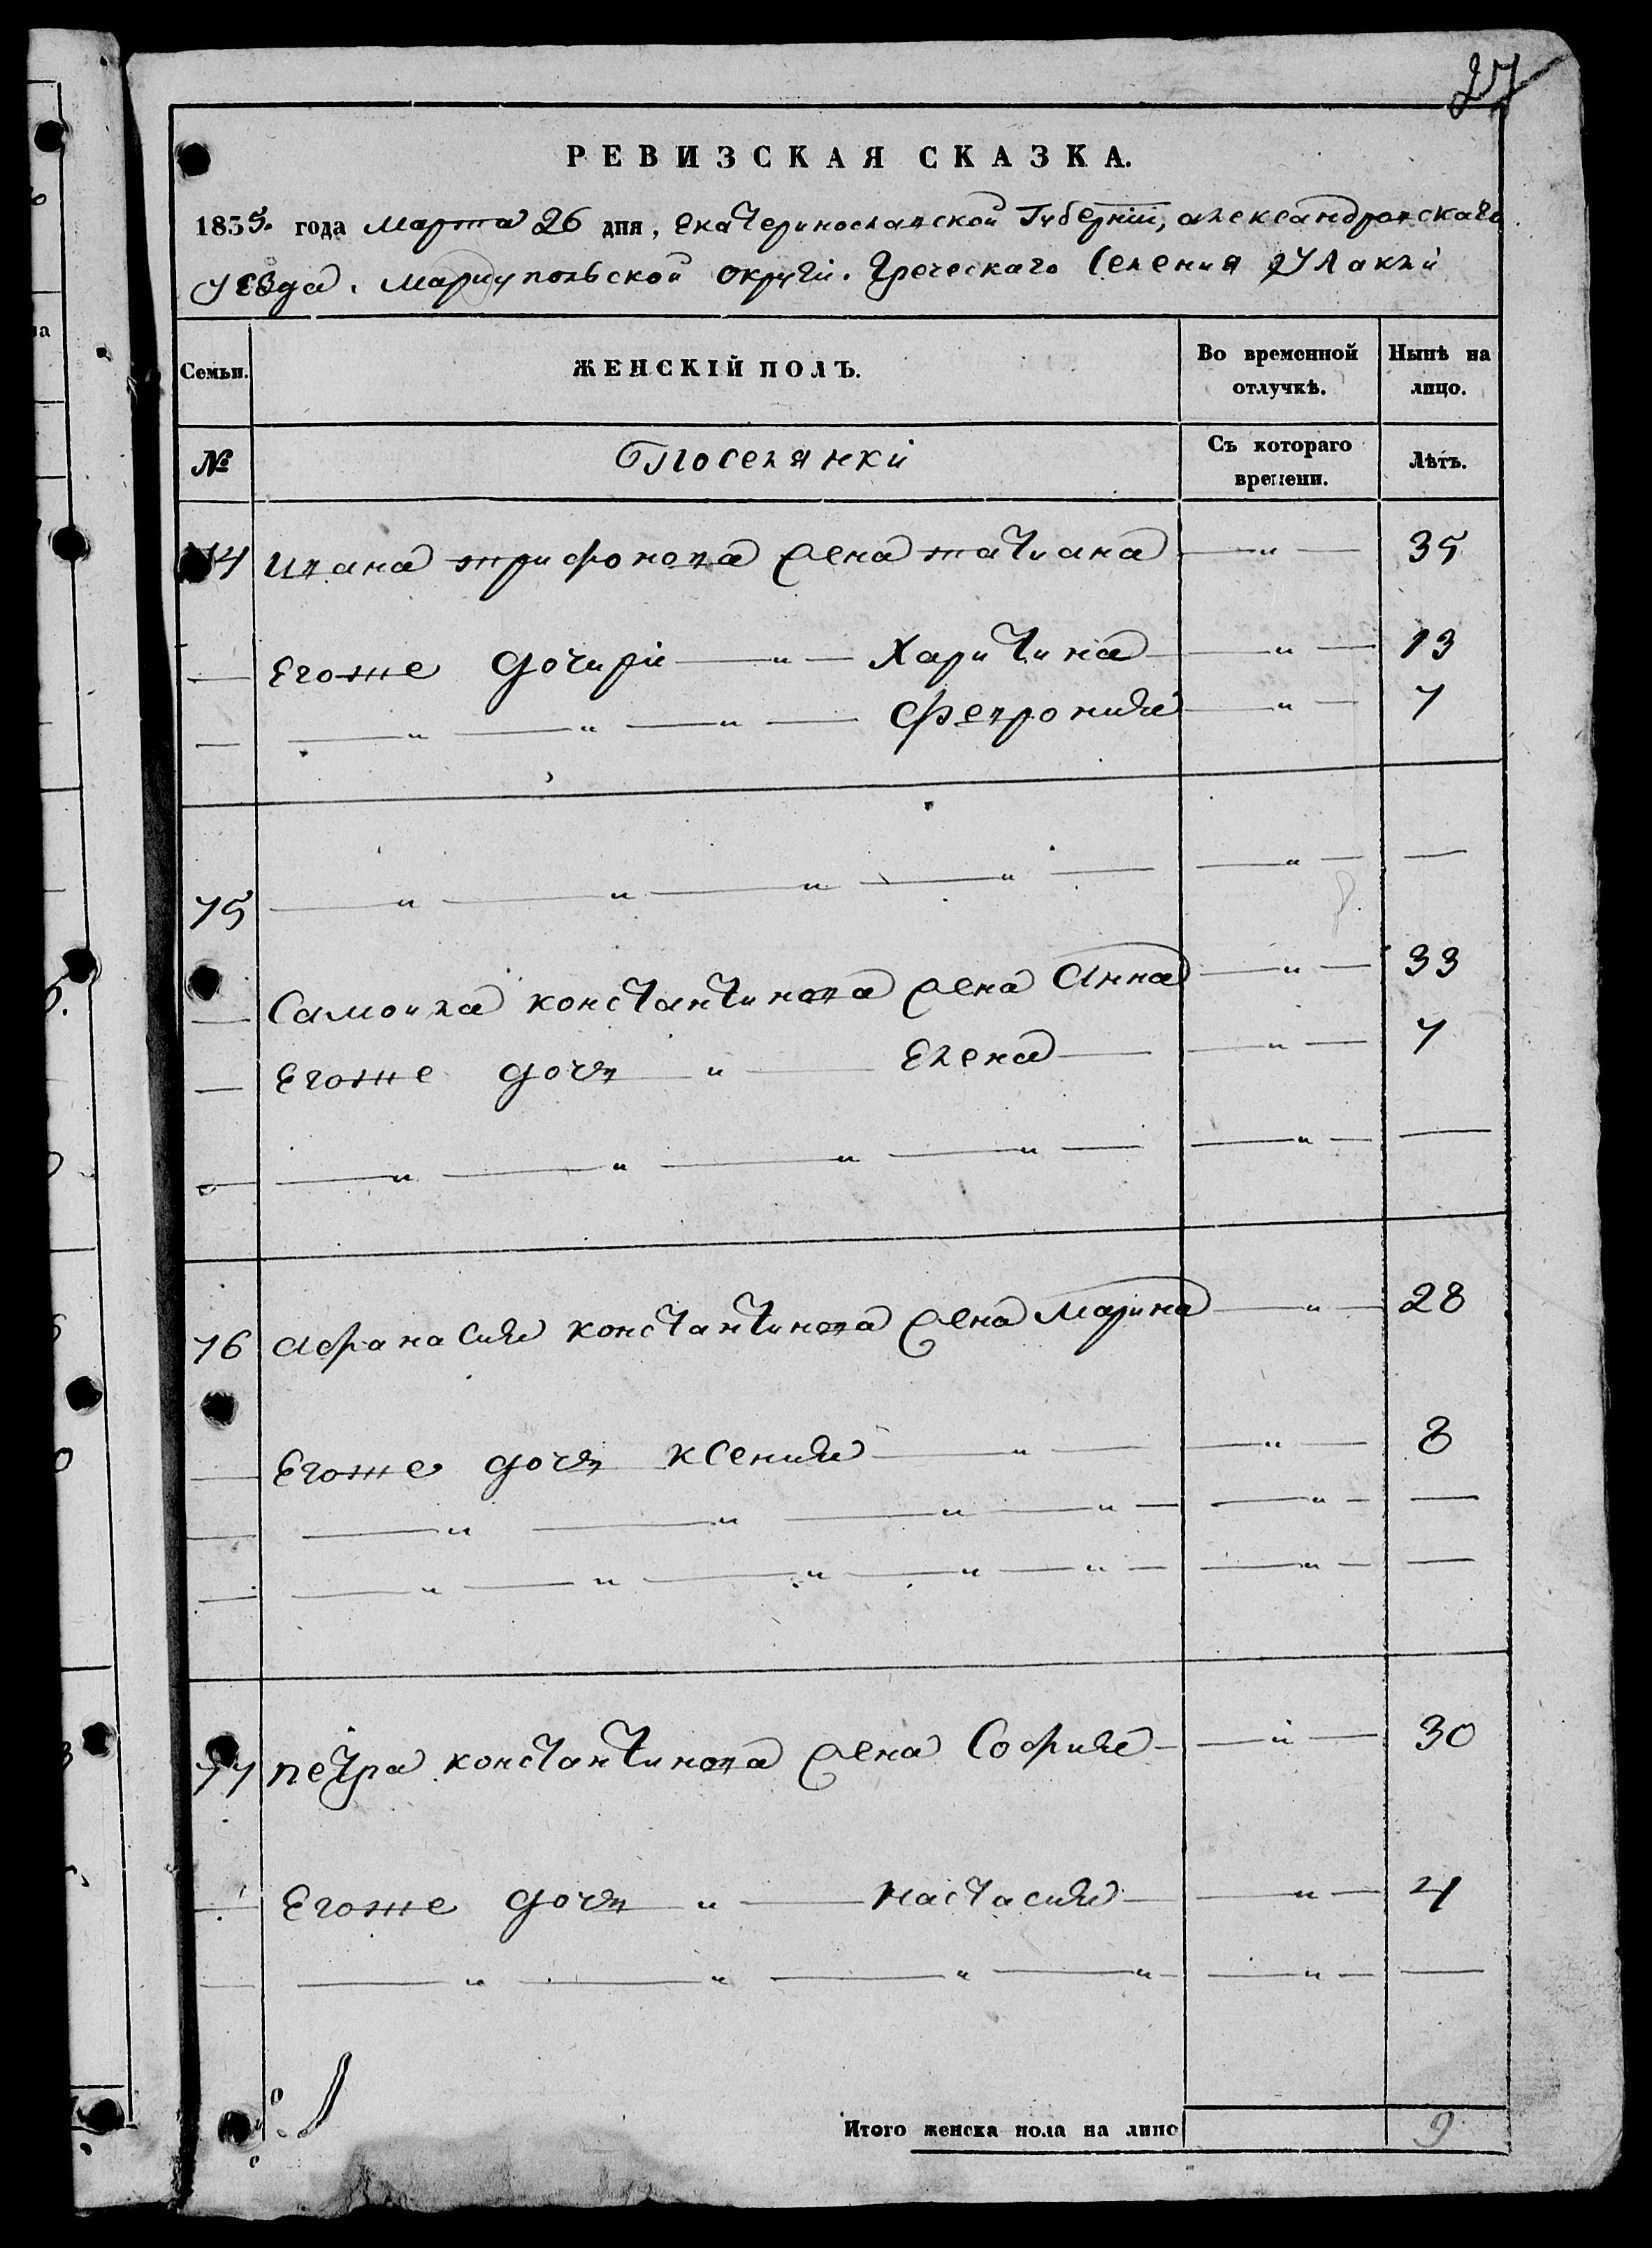 27
РЕВИЗСКАЯ СКАЗКА.
1835. года марта 26 дня, Екатеринославской Губернїи, александровскаго
уезда. мариупольской округи. Греческаго Селения Улаклы
Семьи.
ЖЕНСКІЙ ПОЛЪ.
Во временной отлучкѣ.
Нынѣ на лицо.
№
Поселянкі
Съ котораго времени.
Лѣтъ.
74 ивана трифонова жена татиана — " — 35
— Егоже дочирі — " — Харитина — " — 13
— — " — " — " — Февронию — " — 7
75 — " — " — " — " — — " — —
— Самоила константинова жена Анна — " — 33
— Егоже дочь " — Елена — — " — 7
— — " — " — " — " — — " — —
76 афанасию константинова жена Марина — " — 28
— Егоже дочь ксению — " — — " — 8
— — " — " — " — " — — " — —
— — " — " — " — " — " — — " — —
77 петра константинова жена Софию — — " — 30
— Егоже дочь " — настасию — — " — 4
— — " — " — " — " — — " — —
Итого женска пола на лицо
9